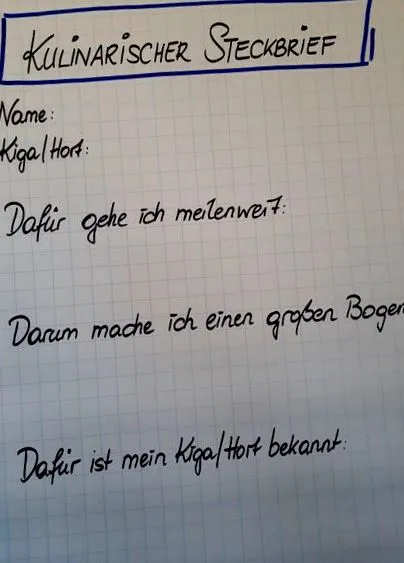 KULINARISCHER STECKBRIEF
Name:
Kiga/Hort:
Dafür gehe ich meilenweit:
Darum mache ich einen großen Bogen
Dafür ist mein Kiga/Hort bekannt: